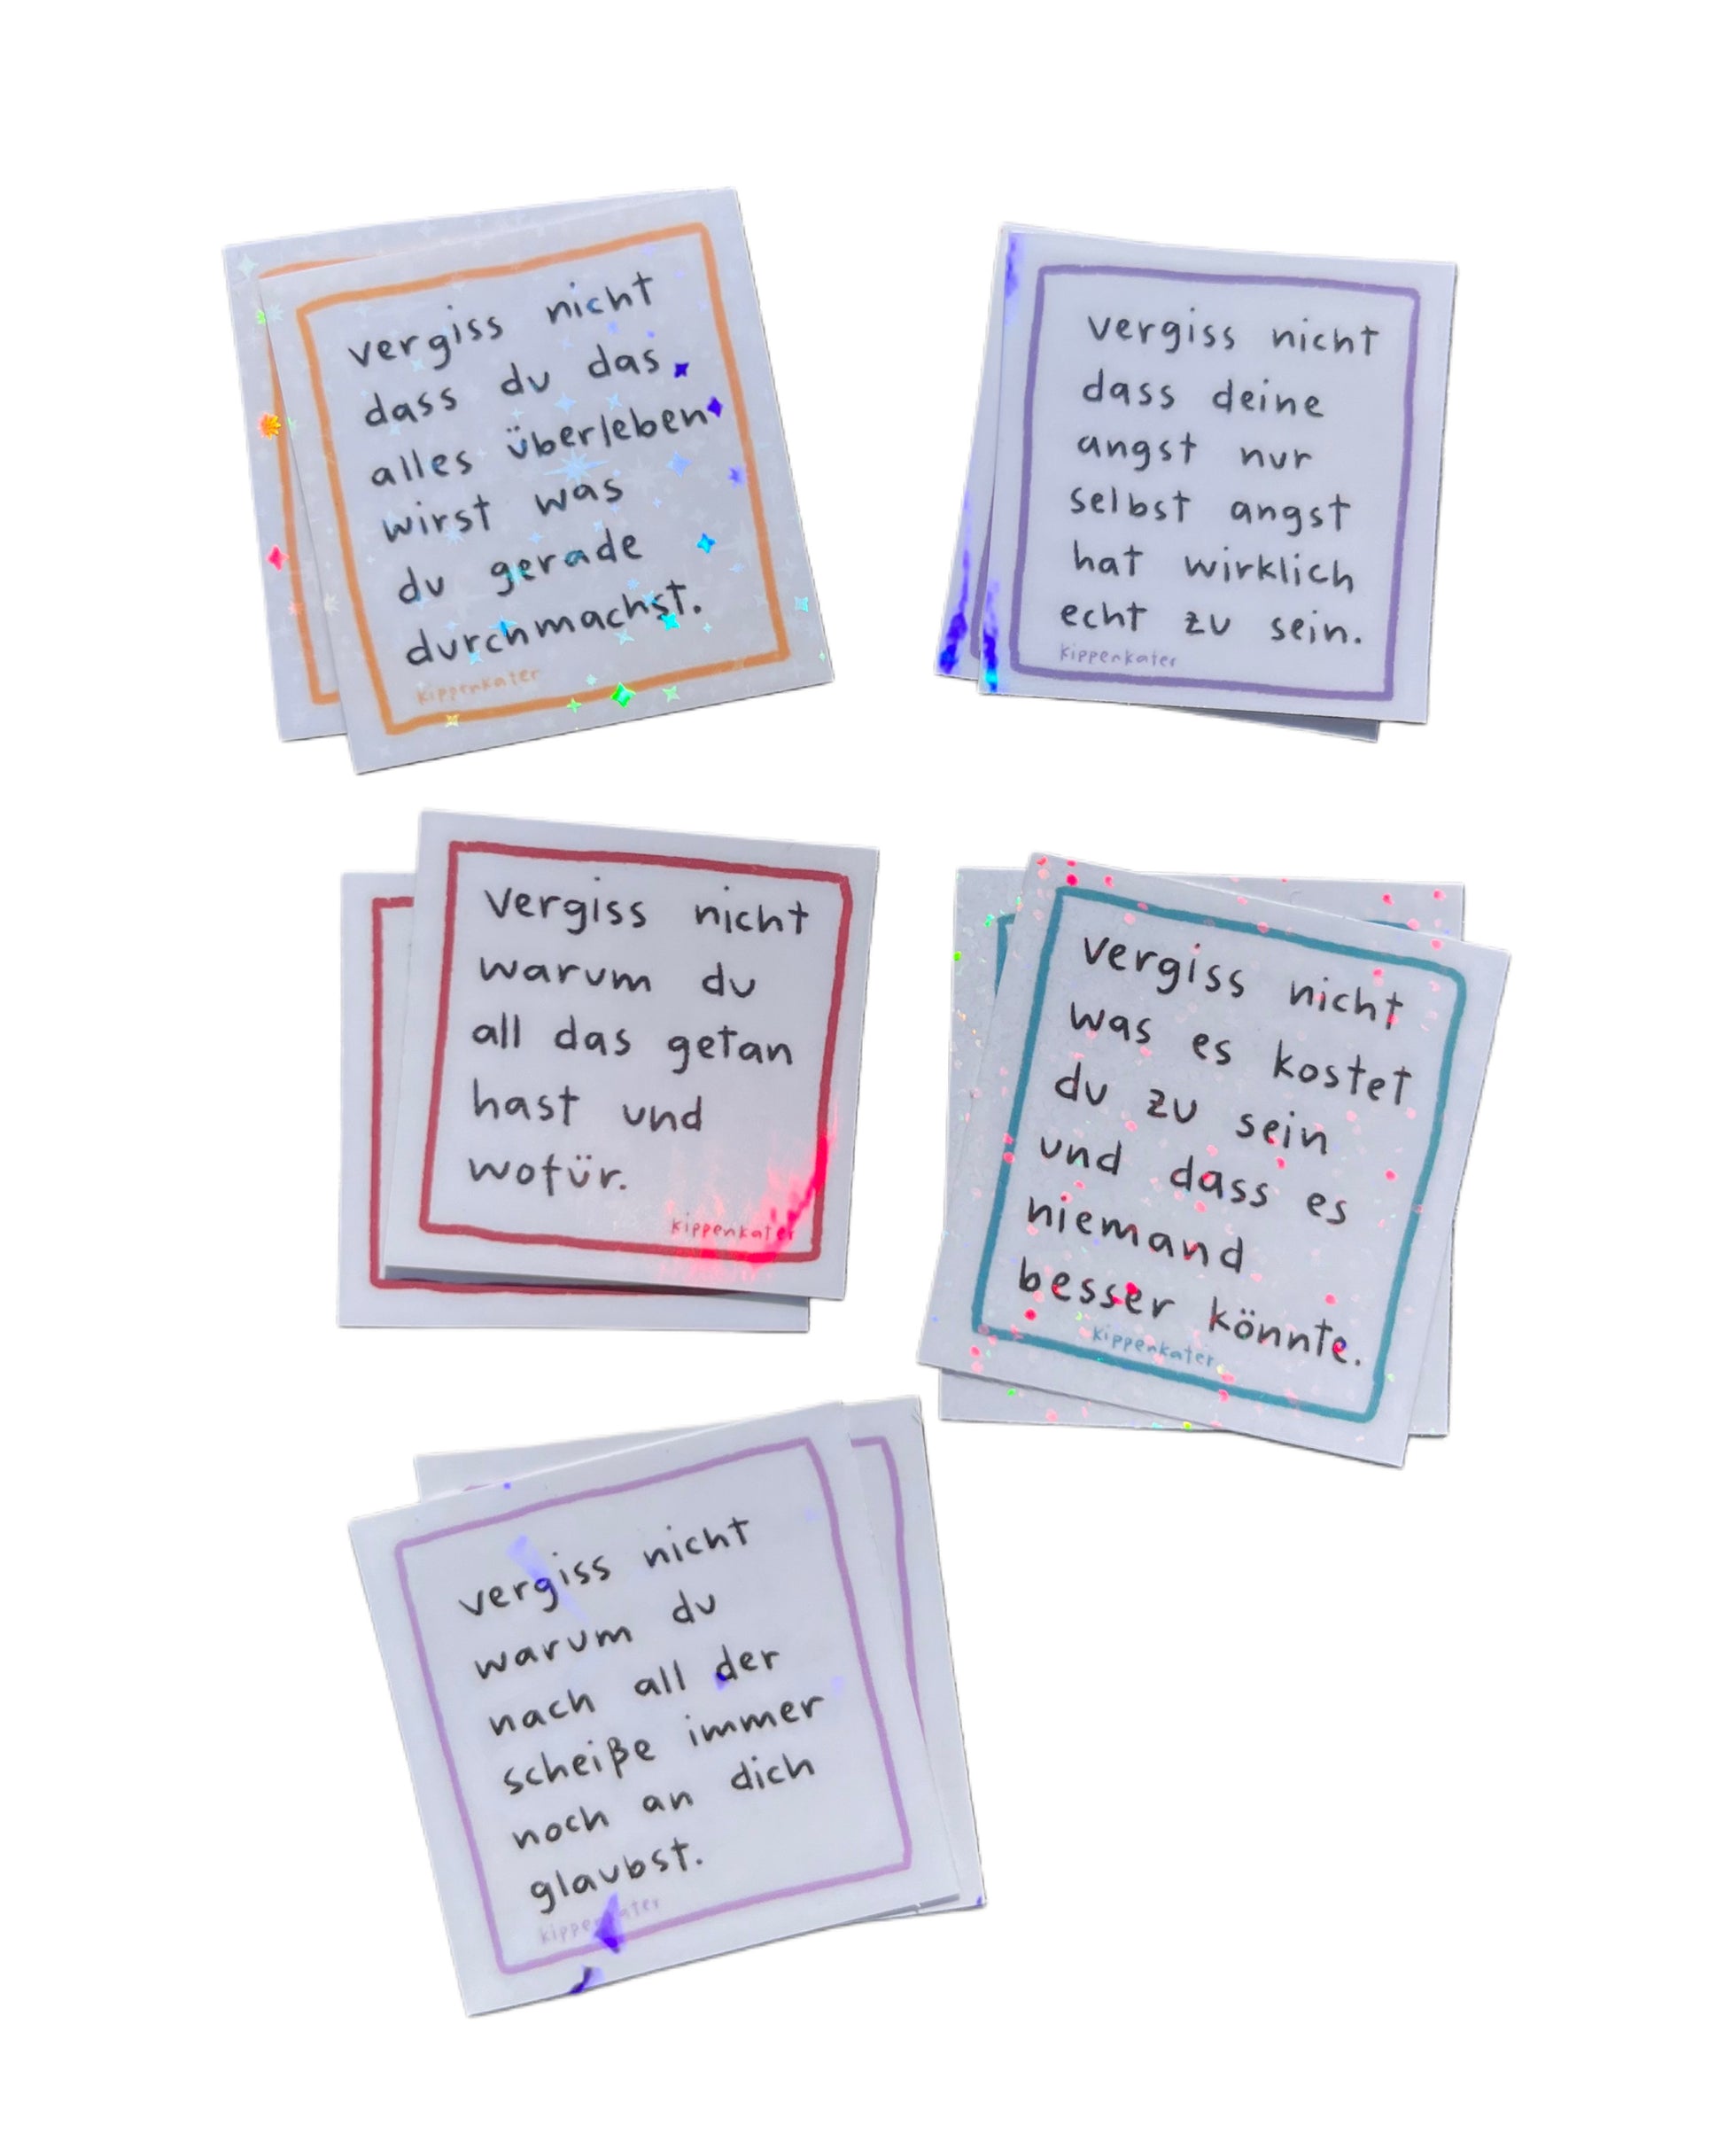 vergiss nicht
dass du das
alles überleben
wirst was
du gerade
durchmachst.
kippenkater
vergiss nicht
dass deine
angst nur
selbst angst
hat wirklich
echt zu sein.
kippenkater
vergiss nicht
warum du
all das getan
hast und
wofür.
kippenkater
vergiss nicht
was es kostet
du zu sein
und dass es
niemand
besser könnte.
kippenkater
vergiss nicht
warum du
nach all der
scheiße immer
noch an dich
glaubst.
kippenkater